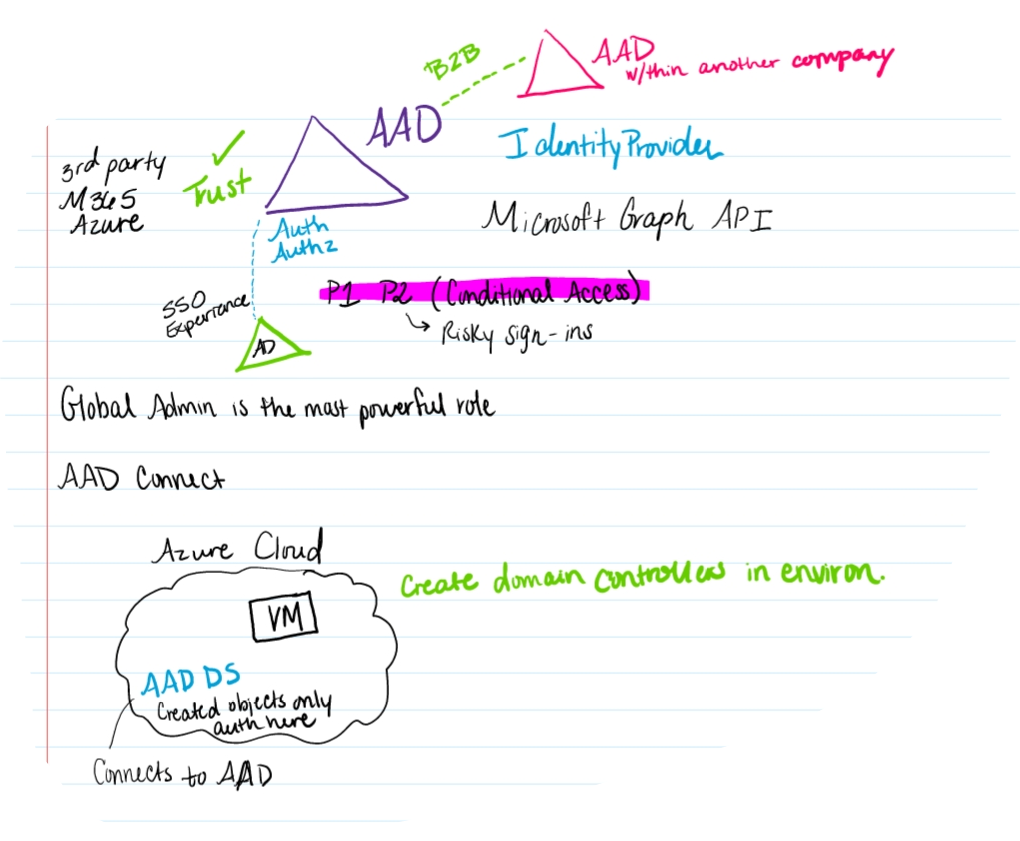 B2B
AAD
w/thin another company
AAD
Identity Provider
3rd party
M365
Azure
Trust
Microsoft Graph API
Auth
Authz
SSO
Experience
P1 P2 (Conditional Access)
Risky sign-ins
AD
Global Admin is the most powerful role
AAD Connect
Azure Cloud
Create domain controllers in environ.
VM
AAD DS
Created objects only
auth here
Connects to AAD